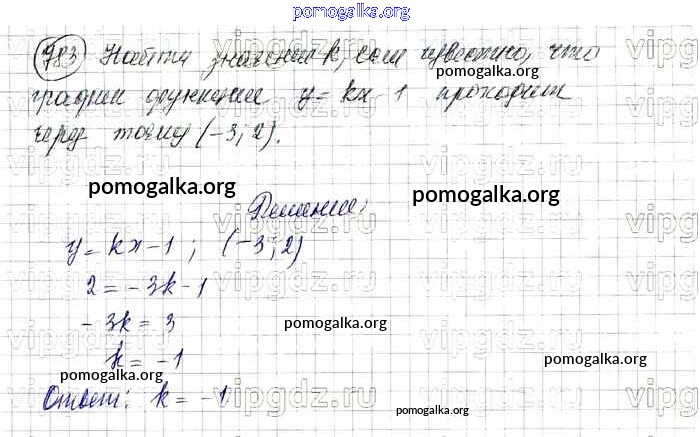 pomogalka.org
783 Найти значения k, если известно, что
график функции y = kx - 1 проходит
через точку (-3; 2).
Решение:
y = kx - 1 ; (-3; 2)
2 = -3k - 1
-3k = 3
k = -1
Ответ: k = -1
pomogalka.org
pomogalka.org
pomogalka.org
pomogalka.org
pomogalka.org
pomogalka.org
pomogalka.org
vipgdz.ru